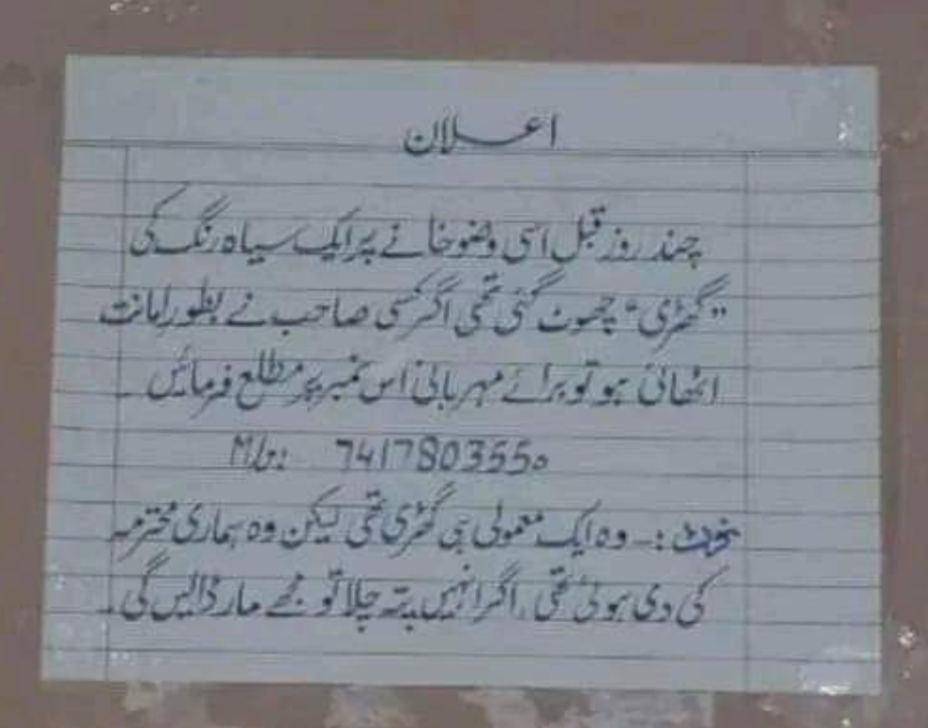 اعلان
چند روز قبل اسی وضو خانے پر ایک سیاہ رنگ کی
"گھڑی" چھوٹ گئی تھی اگر کسی صاحب نے بطور امانت
اٹھائی ہو تو برائے مہربانی اس نمبر پر مطلع فرمائیں ۔
Mb: 7417803550
نوٹ :۔ وہ ایک معمولی سی گھڑی تھی لیکن وہ ہماری محترمہ
کی دی ہوئی تھی ، اگر انہیں پتہ چلا تو مجھے مار ڈالیں گی ۔